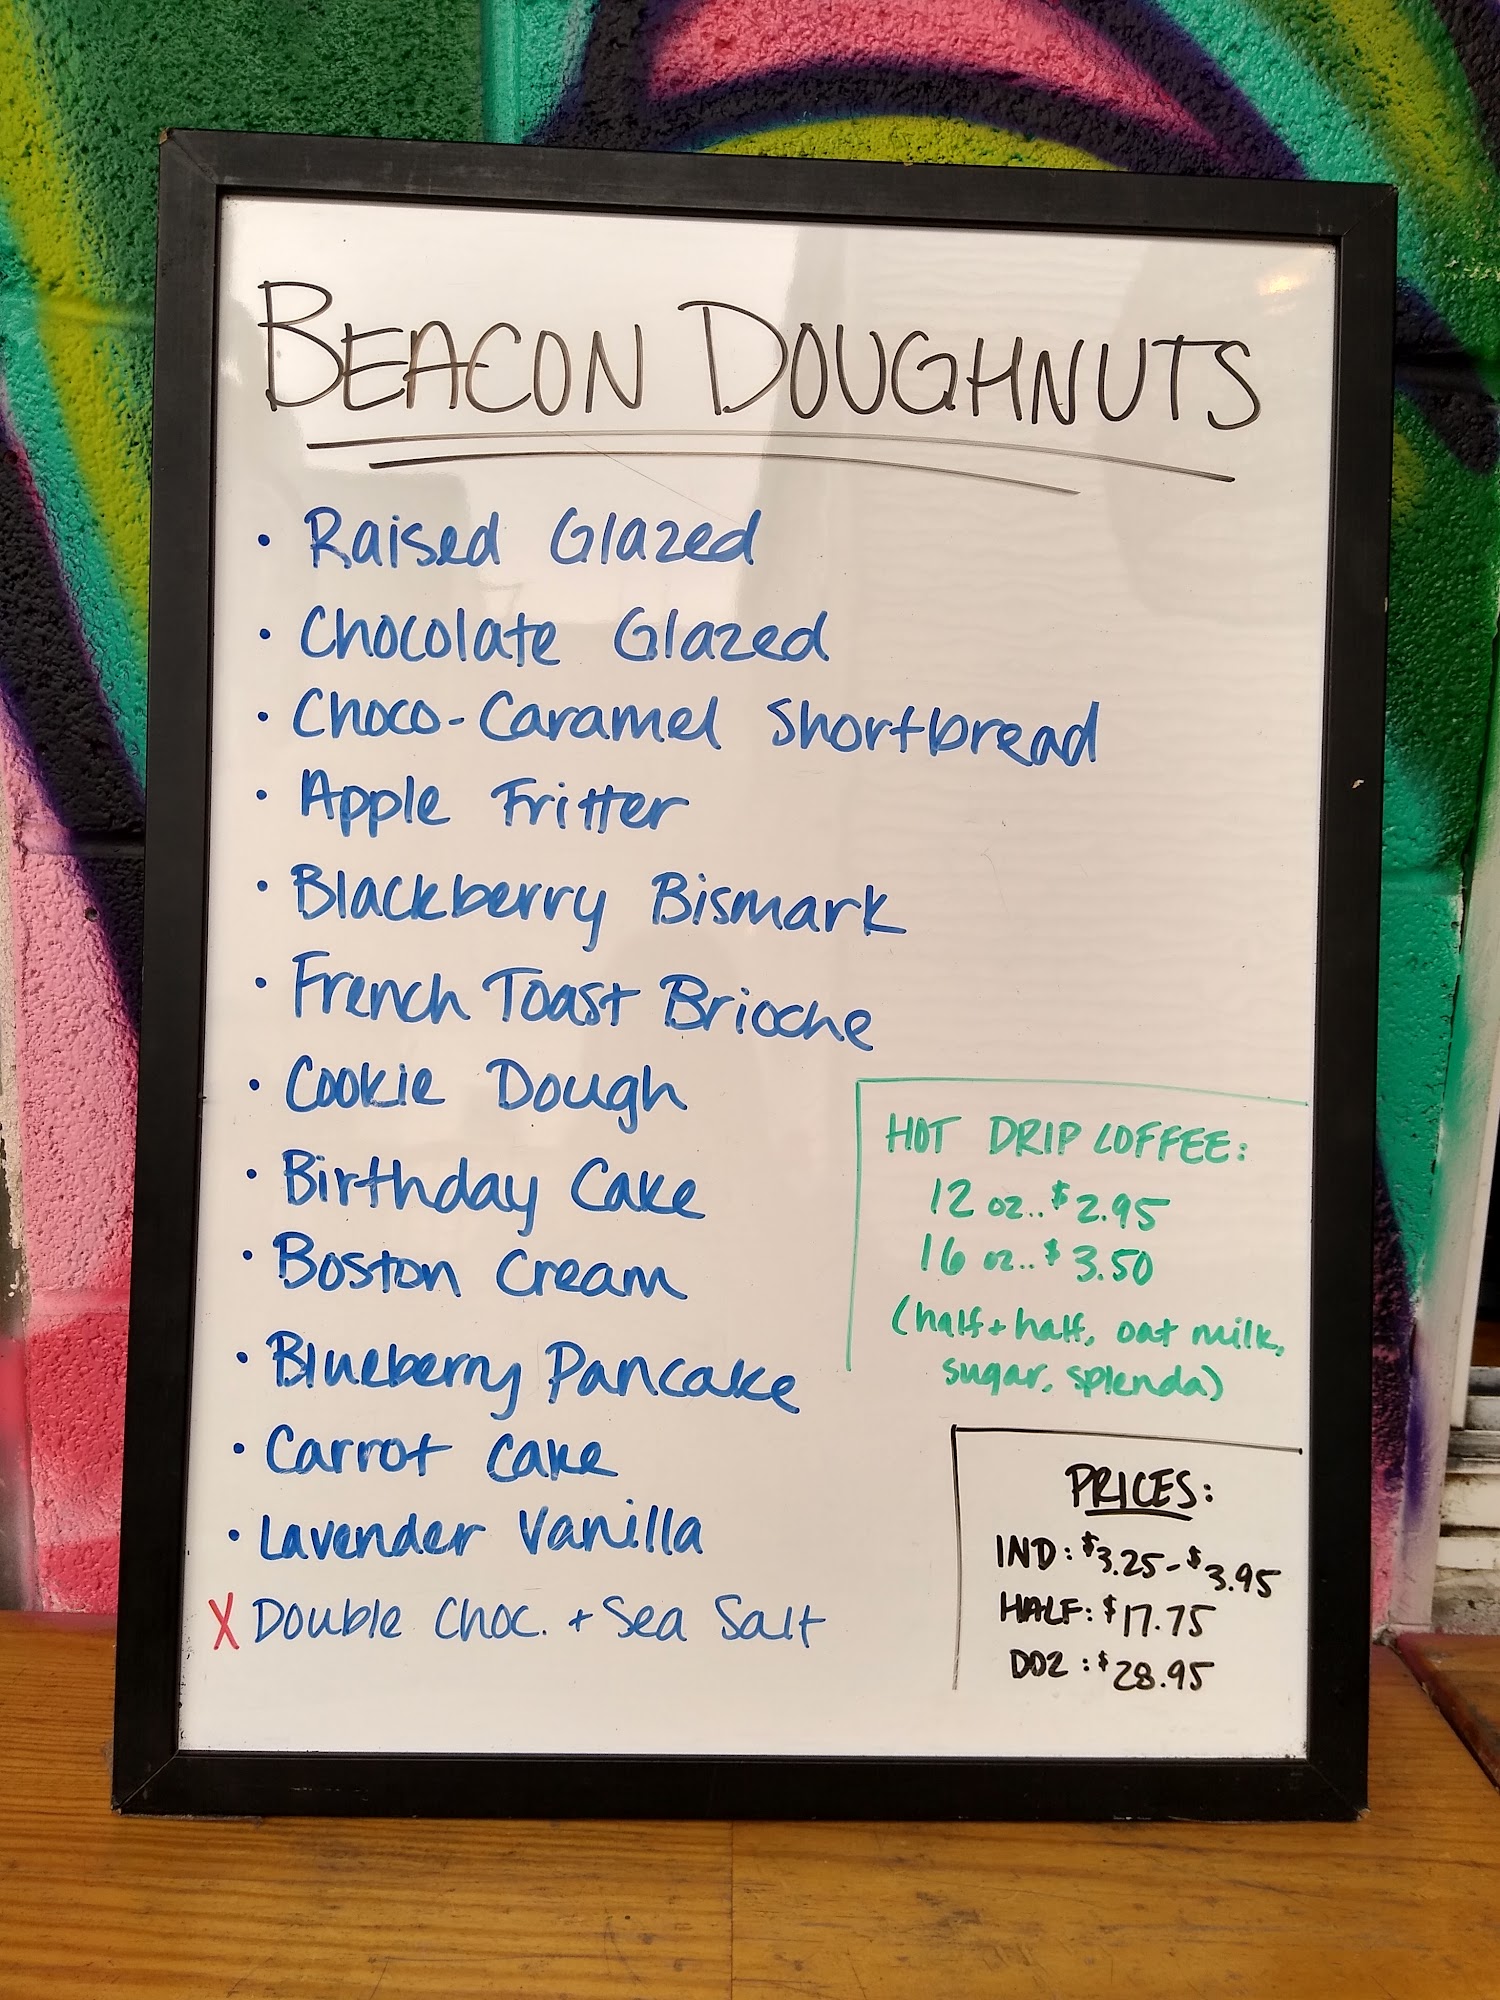 BEACON DOUGHNUTS
• Raised Glazed
• Chocolate Glazed
• Choco-Caramel Shortbread
• Apple Fritter
• Blackberry Bismark
• French Toast Brioche
• Cookie Dough
• Birthday Cake
• Boston Cream
• Blueberry Pancake
• Carrot Cake
• Lavender Vanilla
X Double Choc. + Sea Salt
HOT DRIP COFFEE:
12 oz..$2.95
16 oz..$3.50
(half + half, oat milk,
sugar, splenda)
PRICES:
IND: $3.25-$3.95
HALF: $17.75
DOZ: $28.95